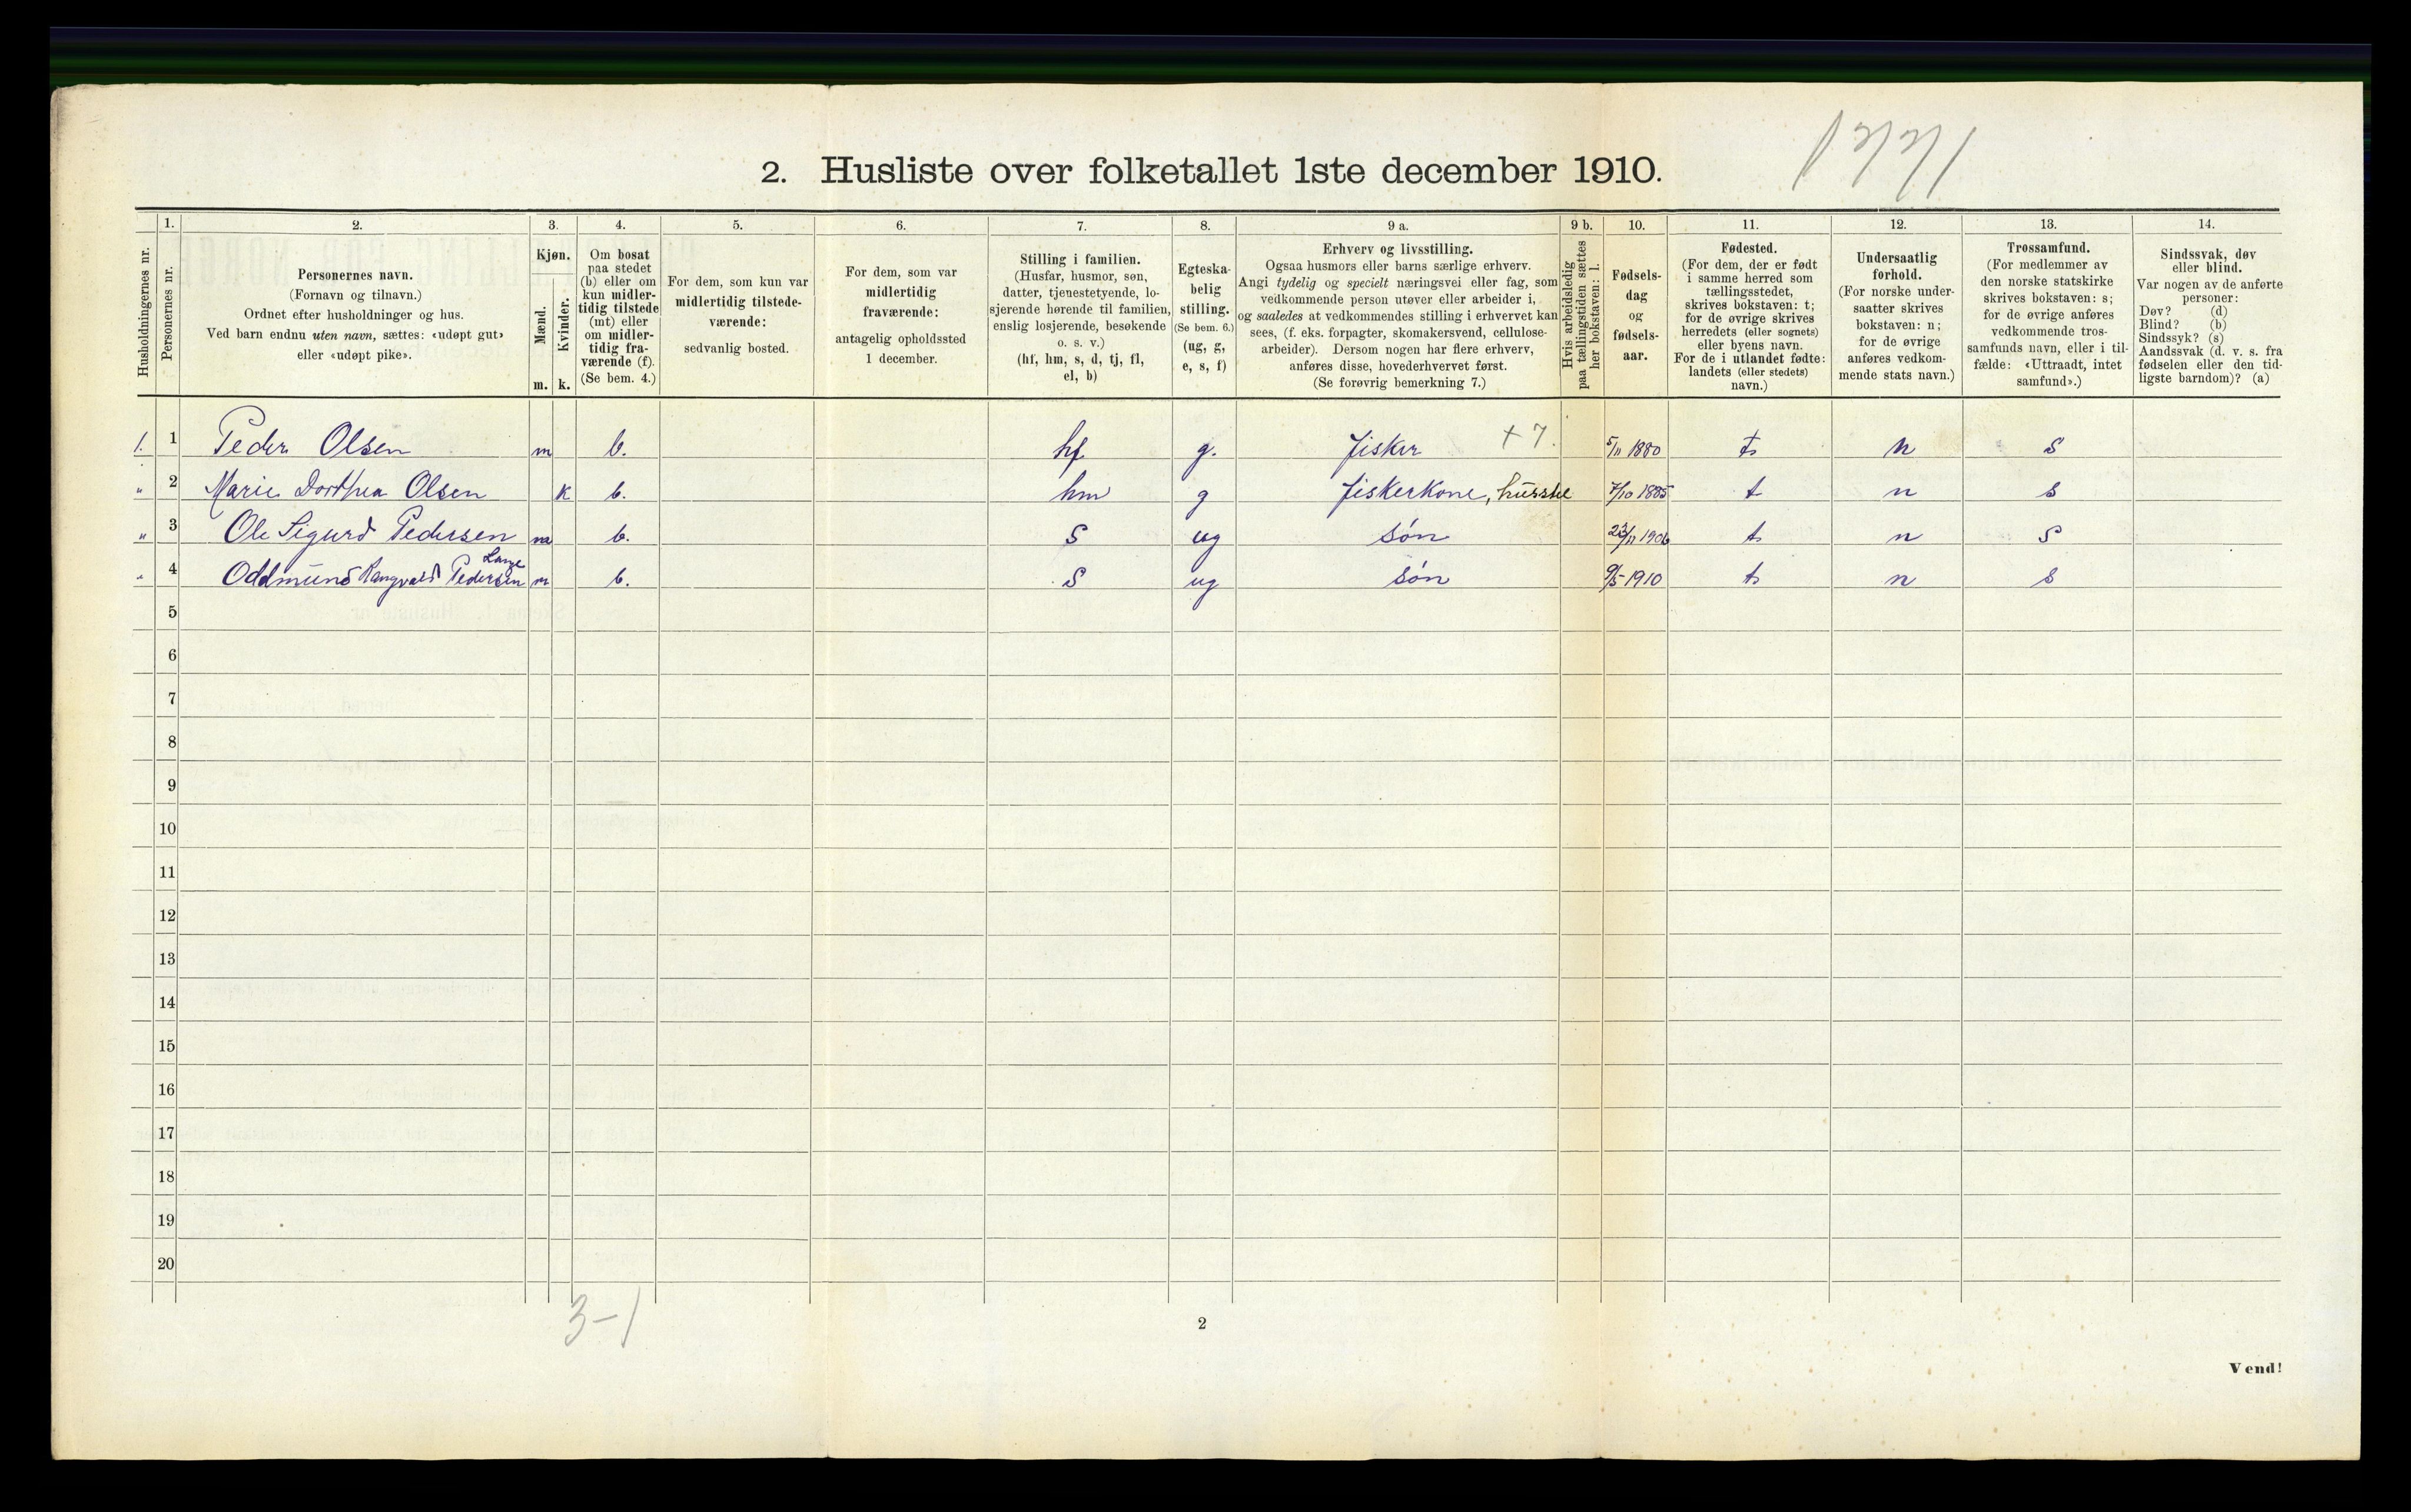 2. Husliste over folketallet 1ste december 1910.
1. 2. 3. 4. 5. 6. 7. 8. 9 a. 9 b. 10. 11. 12. 13. 14.
Husholdningernes nr.
Personernes nr.
Personernes navn.
(Fornavn og tilnavn.)
Ordnet efter husholdninger og hus.
Ved barn endnu uten navn, sættes: «udøpt gut»
eller «udøpt pike».
Kjøn.
Mænd.
Kvinder.
m. k.
Om bosat
paa stedet
(b) eller om
kun midler-
tidig tilstede
(mt) eller
om midler-
tidig fra-
værende (f).
(Se bem. 4.)
For dem, som kun var
midlertidig tilstede-
værende:
sedvanlig bosted.
For dem, som var
midlertidig
fraværende:
antagelig opholdssted
1 december.
Stilling i familien.
(Husfar, husmor, søn,
datter, tjenestetyende, lo-
sjerende hørende til familien,
enslig losjerende, besøkende
o. s. v.)
(hf, hm, s, d, tj, fl,
el, b)
Egteska-
belig
stilling.
(Se bem. 6.)
(ug, g,
e, s, f)
Erhverv og livsstilling.
Ogsaa husmors eller barns særlige erhverv.
Angi tydelig og specielt næringsvei eller fag, som
vedkommende person utøver eller arbeider i,
og saaledes at vedkommendes stilling i erhvervet kan
sees, (f. eks. forpagter, skomakersvend, cellulose-
arbeider). Dersom nogen har flere erhverv,
anføres disse, hovederhvervet først.
(Se forøvrig bemerkning 7.)
Hvis arbeidsledig
paa tællingstiden sættes
her bokstaven: l.
Fødsels-
dag
og
fødsels-
aar.
Fødested.
(For dem, der er født
i samme herred som
tællingsstedet,
skrives bokstaven: t;
for de øvrige skrives
herredets (eller sognets)
eller byens navn.
For de i utlandet fødte:
landets (eller stedets)
navn.)
Undersaatlig
forhold.
(For norske under-
saatter skrives
bokstaven: n;
for de øvrige
anføres vedkom-
mende stats navn.)
Trossamfund.
(For medlemmer av
den norske statskirke
skrives bokstaven: s;
for de øvrige anføres
vedkommende tros-
samfunds navn, eller i til-
fælde: «Uttraadt, intet
samfund».)
Sindssvak, døv
eller blind.
Var nogen av de anførte
personer:
Døv? (d)
Blind? (b)
Sindssyk? (s)
Aandssvak (d. v. s. fra
fødselen eller den tid-
ligste barndom)? (a)
1. 1 Peder Olsen m b. hf g. fisker + 7. 5/11 1880 t n s
" 2 Marie Dorthea Olsen k b. hm g fiskerkone, husstel 7/10 1885 t n s
" 3 Ole Sigurd Pedersen m b. s ug søn 23/11 1906 t n s
Lange
" 4 Oddmund Rangvald Pedersen m b. s ug søn 9/5 1910 t n s
5
6
7
8
9
10
11
12
13
14
15
16
17
18
19
20
3-1
2
Vend!